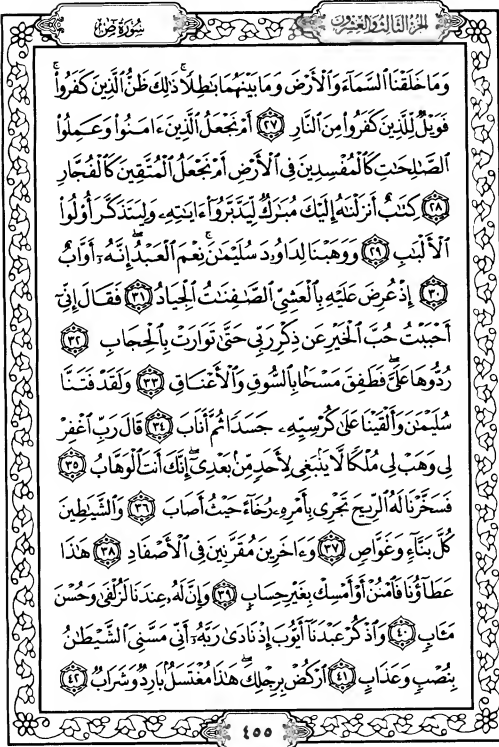 سُورَةُ صٓ
الجُزءُ الثَّالِثُ وَالعِشرُونَ
وَمَا خَلَقْنَا ٱلسَّمَآءَ وَٱلْأَرْضَ وَمَا بَيْنَهُمَا بَٰطِلًا ۚ ذَٰلِكَ ظَنُّ ٱلَّذِينَ كَفَرُوا۟ ۚ
فَوَيْلٌ لِّلَّذِينَ كَفَرُوا۟ مِنَ ٱلنَّارِ ٢٧ أَمْ نَجْعَلُ ٱلَّذِينَ ءَامَنُوا۟ وَعَمِلُوا۟
ٱلصَّٰلِحَٰتِ كَٱلْمُفْسِدِينَ فِى ٱلْأَرْضِ أَمْ نَجْعَلُ ٱلْمُتَّقِينَ كَٱلْفُجَّارِ
٢٨ كِتَٰبٌ أَنزَلْنَٰهُ إِلَيْكَ مُبَٰرَكٌ لِّيَدَّبَّرُوٓا۟ ءَايَٰتِهِۦ وَلِيَتَذَكَّرَ أُو۟لُوا۟
ٱلْأَلْبَٰبِ ٢٩ وَوَهَبْنَا لِدَاوُۥدَ سُلَيْمَٰنَ ۚ نِعْمَ ٱلْعَبْدُ ۖ إِنَّهُۥٓ أَوَّابٌ
٣٠ إِذْ عُرِضَ عَلَيْهِ بِٱلْعَشِىِّ ٱلصَّٰفِنَٰتُ ٱلْجِيَادُ ٣١ فَقَالَ إِنِّىٓ
أَحْبَبْتُ حُبَّ ٱلْخَيْرِ عَن ذِكْرِ رَبِّى حَتَّىٰ تَوَارَتْ بِٱلْحِجَابِ ٣٢
رُدُّوهَا عَلَىَّ ۖ فَطَفِقَ مَسْحًۢا بِٱلسُّوقِ وَٱلْأَعْنَاقِ ٣٣ وَلَقَدْ فَتَنَّا
سُلَيْمَٰنَ وَأَلْقَيْنَا عَلَىٰ كُرْسِيِّهِۦ جَسَدًا ثُمَّ أَنَابَ ٣٤ قَالَ رَبِّ ٱغْفِرْ
لِى وَهَبْ لِى مُلْكًا لَّا يَنۢبَغِى لِأَحَدٍ مِّنۢ بَعْدِىٓ ۖ إِنَّكَ أَنتَ ٱلْوَهَّابُ ٣٥
فَسَخَّرْنَا لَهُ ٱلرِّيحَ تَجْرِى بِأَمْرِهِۦ رُخَآءً حَيْثُ أَصَابَ ٣٦ وَٱلشَّيَٰطِينَ
كُلَّ بَنَّآءٍ وَغَوَّاصٍ ٣٧ وَءَاخَرِينَ مُقَرَّنِينَ فِى ٱلْأَصْفَادِ ٣٨ هَٰذَا
عَطَآؤُنَا فَٱمْنُنْ أَوْ أَمْسِكْ بِغَيْرِ حِسَابٍ ٣٩ وَإِنَّ لَهُۥ عِندَنَا لَزُلْفَىٰ وَحُسْنَ
مَـَٔابٍ ٤٠ وَٱذْكُرْ عَبْدَنَآ أَيُّوبَ إِذْ نَادَىٰ رَبَّهُۥٓ أَنِّى مَسَّنِىَ ٱلشَّيْطَٰنُ
بِنُصْبٍ وَعَذَابٍ ٤١ ٱرْكُضْ بِرِجْلِكَ ۖ هَٰذَا مُغْتَسَلٌۢ بَارِدٌ وَشَرَابٌ ٤٢
٤٥٥